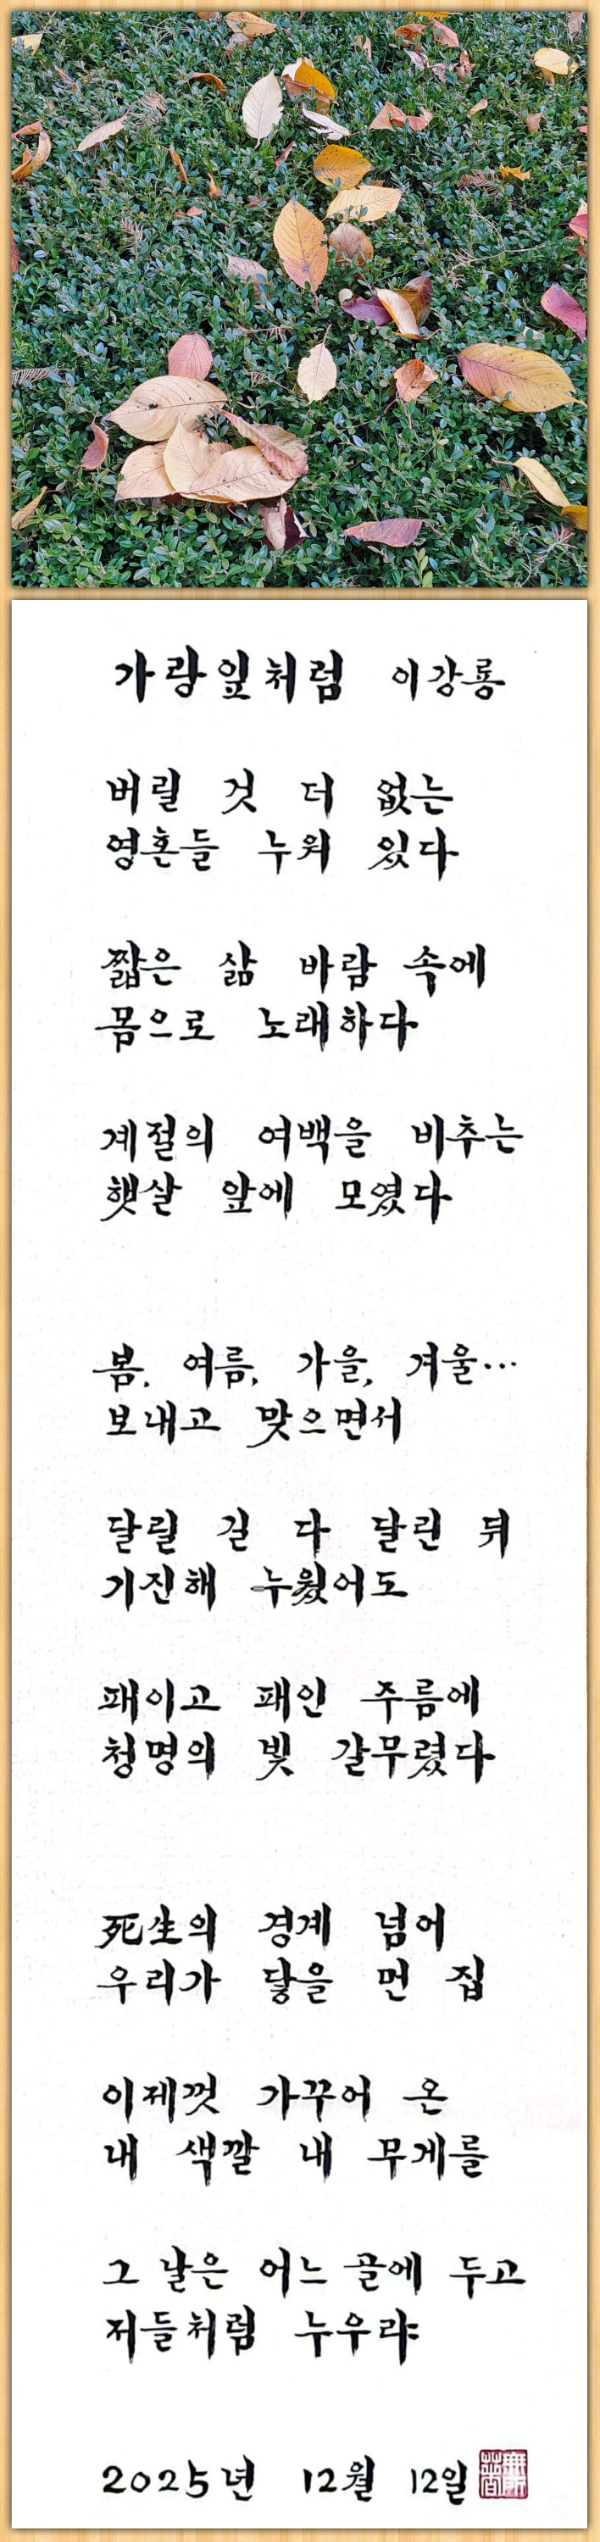 가랑잎처럼 이강룡
버릴 것 더 없는
영혼들 누워 있다
짧은 삶 바람 속에
몸으로 노래하다
계절의 여백을 비추는
햇살 앞에 모였다
봄, 여름, 가을, 겨울…
보내고 맞으면서
달릴 길 다 달린 뒤
기진해 누웠어도
패이고 패인 주름에
청명의 빛 갈무렸다
死生의 경계 넘어
우리가 닿을 먼 집
이제껏 가꾸어 온
내 색깔 내 무게를
그 날은 어느 골에 두고
저들처럼 누우랴
2025년 12월 12일